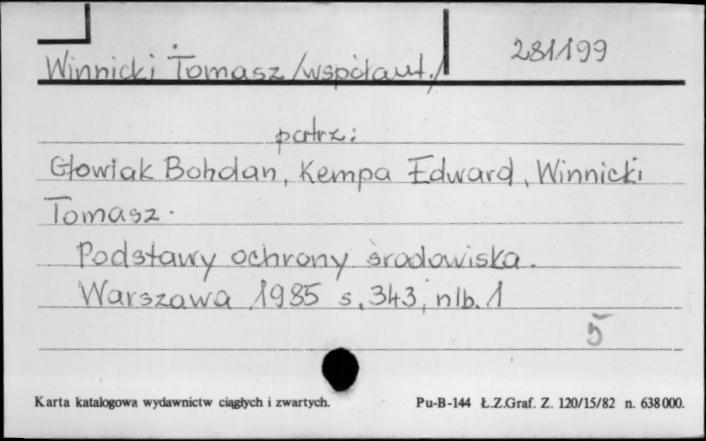 281199
Winnicki Tomasz /współaut./
patrz:
Głowiak Bohdan, Kempa Edward, Winnicki
Tomasz.
Podstawy ochrony środowiska.
Warszawa 1985 s. 343, nlb. 1
5
Karta katalogowa wydawnictw ciągłych i zwartych. Pu-B-144 Ł.Z.Graf. Z. 120/15/82 n. 638000.